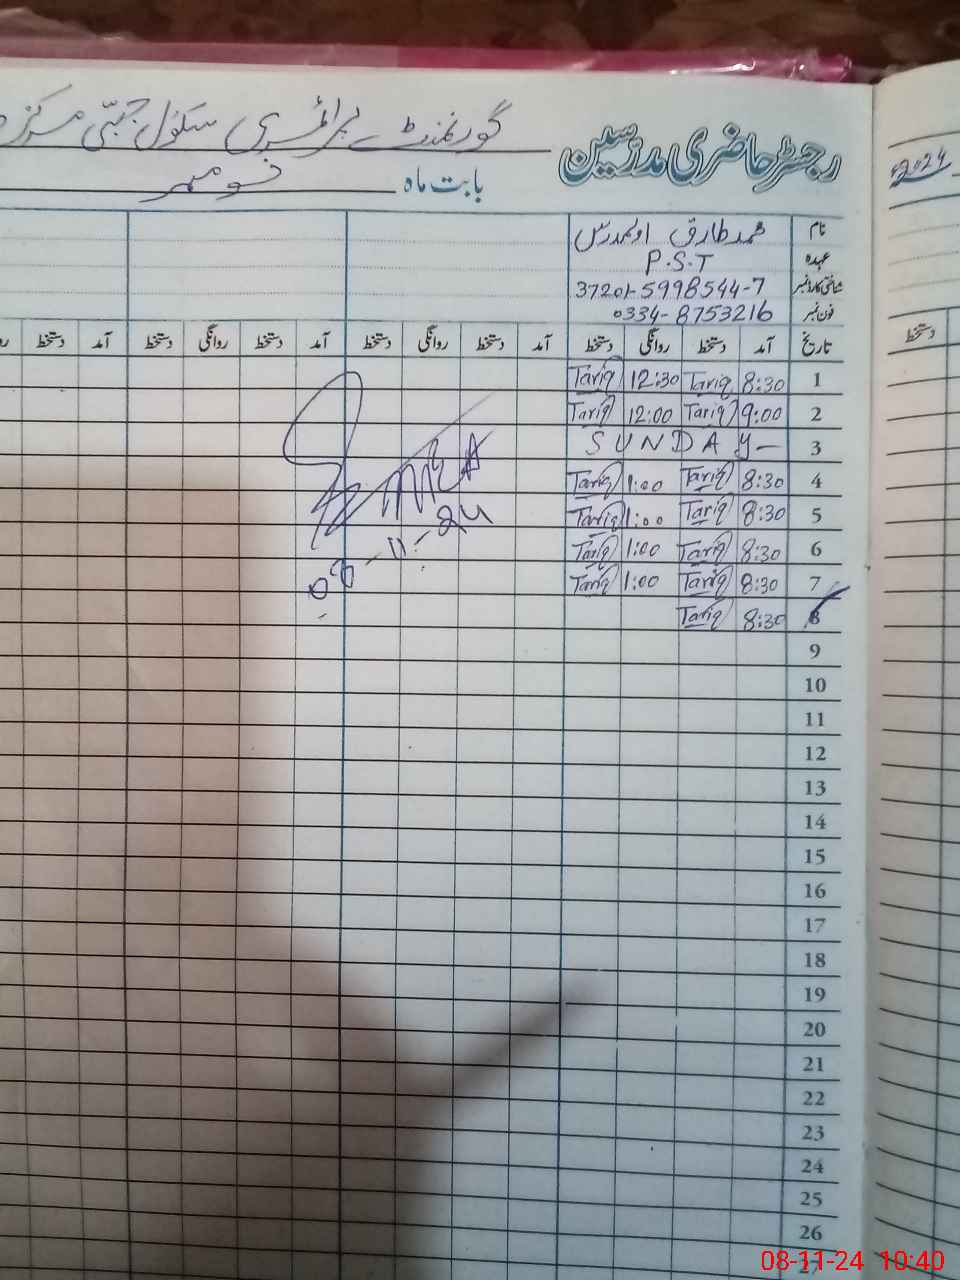 گورنمنٹ پرائمری سکول جبّی مرکز
رجسٹر حاضری مدرسین
بابت ماہ نومبر
2024
نام محمد طارق اول مدرس
عہدہ P.S.T
شناختی کارڈ نمبر 37201-5998544-7
فون نمبر 0334-8753216
تاریخ آمد دستخط روانگی دستخط آمد دستخط روانگی دستخط آمد دستخط روانگی دستخط آمد دستخط
دستخط
1 8:30 Tariq 12:30 Tariq
2 9:00 Tariq 12:00 Tariq
3 SUNDAY-
4 8:30 Tariq 1:00 Tariq
5 8:30 Tariq 1:00 Tariq
6 8:30 Tariq 1:00 Tariq
7 8:30 Tariq 1:00 Tariq
8 8:30 Tariq
MEA
08-11-24
9
10
11
12
13
14
15
16
17
18
19
20
21
22
23
24
25
26
27
08-11-24 10:40